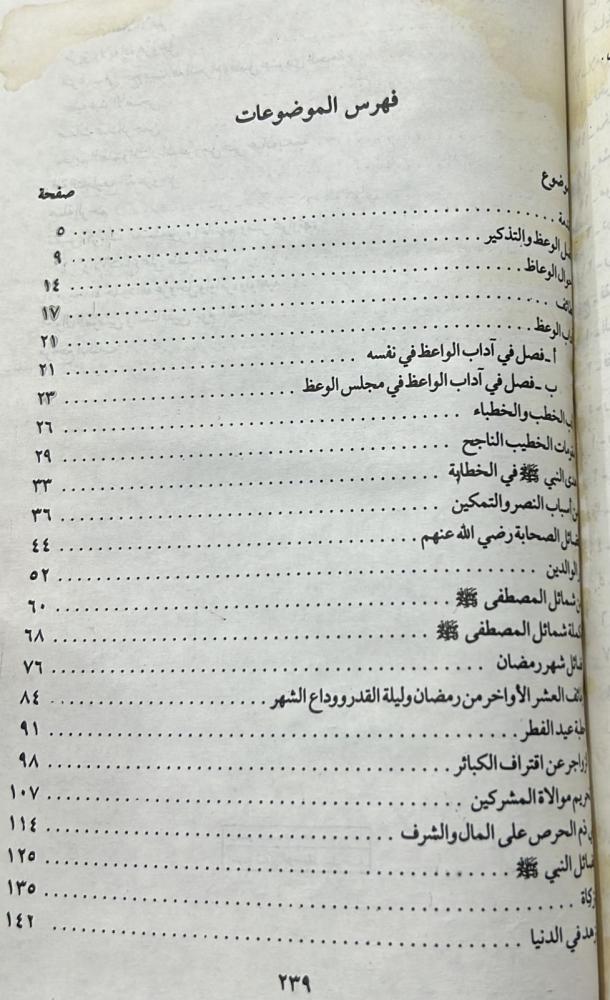 فهرس الموضوعات
صفحة
٥
الوعظ والتذكير ٩
الوعاظ ١٤
١٧
الوعظ ٢١
أ ـ فصل في آداب الواعظ في نفسه ٢١
ب ـ فصل في آداب الواعظ في مجلس الوعظ ٢٣
الخطب والخطباء ٢٦
الخطيب الناجح ٢٩
النبي ﷺ في الخطابة ٣٣
أسباب النصر والتمكين ٣٦
الصحابة رضي الله عنهم ٤٤
الوالدين ٥٢
شمائل المصطفى ﷺ ٦٠
شمائل المصطفى ﷺ ٦٨
شهر رمضان ٧٦
العشر الأواخر من رمضان وليلة القدر ووداع الشهر ٨٤
عيد الفطر ٩١
عن اقتراف الكبائر ٩٨
موالاة المشركين ١٠٧
ذم الحرص على المال والشرف ١١٤
النبي ﷺ ١٢٥
١٣٥
في الدنيا ١٤٢
٢٣٩